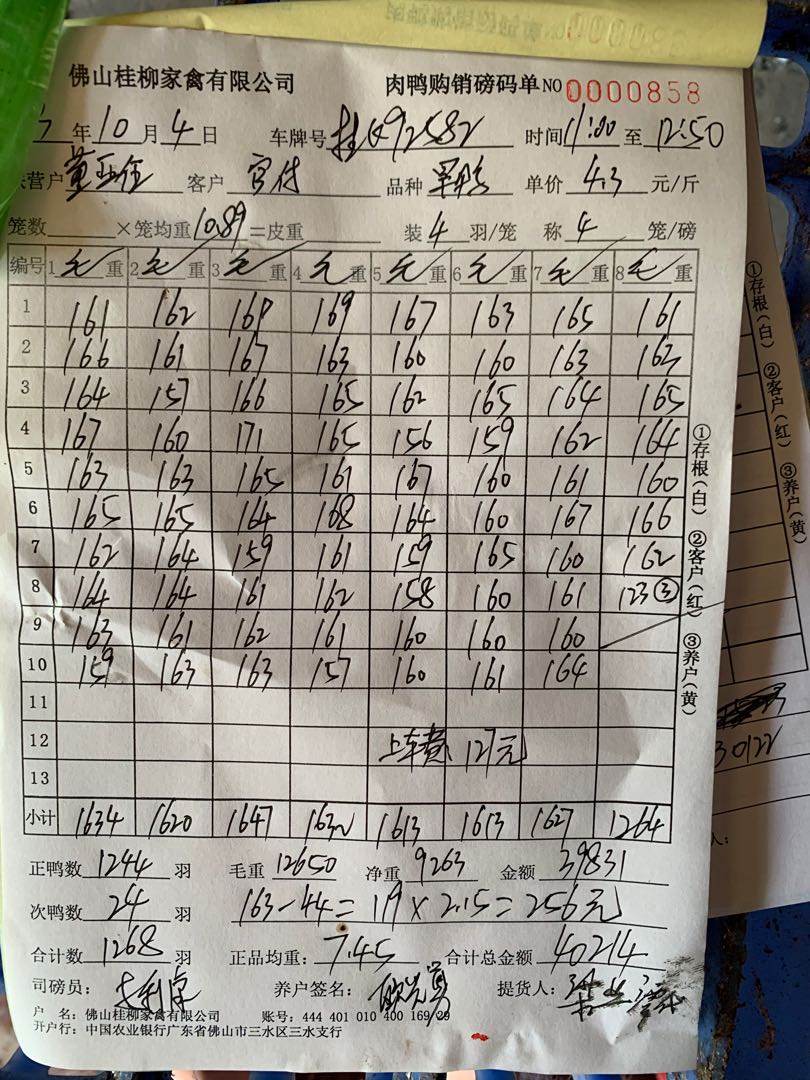 佛山桂柳家禽有限公司 肉鸭购销磅码单 NO 0000858
年 10 月 4 日 车牌号 桂K92582 时间 11:00 至 12:50
营户 客户 品种 单价 4.3 元/斤
笼数 ×笼均重 10.89 =皮重 装 4 羽/笼 称 4 笼/磅
编号 1 毛重 2 毛重 3 毛重 4 毛重 5 毛重 6 毛重 7 毛重 8 毛重
1 161 162 169 169 167 163 165 161
2 166 161 167 163 160 160 163 163
3 164 157 166 165 162 165 164 165
4 167 160 171 165 156 159 162 164
5 163 163 165 161 167 160 161 160
6 165 165 164 168 164 160 167 166
7 162 164 159 161 159 165 160 162
8 164 164 161 162 158 160 161 123 ③
9 163 161 162 161 160 160 160
10 159 163 163 157 160 161 164
11
12 上车费 127元
13
小计 1634 1620 1647 1632 1613 1613 1627 1264
正鸭数 1244 羽 毛重 12650 净重 9263 金额 39831
次鸭数 24 羽 163-44=119×2.15=256元
合计数 1268 羽 正品均重: 7.45 合计总金额 40214
司磅员: 养户签名: 提货人:
户 名: 佛山桂柳家禽有限公司 账号: 444 401 010 400 169 29
开户行: 中国农业银行广东省佛山市三水区三水支行
①存根(白) ②客户(红) ③养户(黄)
①存根(白) ②客户(红) ③养户(黄)
30122